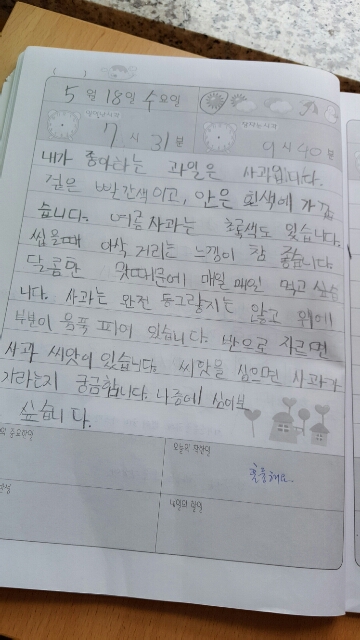 5월 18일 수요일
7시 31분
9시 40분
내가 좋아하는 과일은 사과입니다.
겉은 빨간색이고, 안은 흰색에 가깝
습니다. 여름 사과는 초록색도 있습니다.
씹을때 아삭 거리는 느낌이 참 좋습니다.
달콤한 맛때문에 매일 매일 먹고 싶습
니다. 사과는 완전 동그랗지는 않고 위에
부분이 움푹 파이 있습니다. 반으로 자르면
사과 씨앗이 있습니다. 씨앗을 심으면 사과가
자라는지 궁금합니다. 나중에 심어보
싶습니다.
오늘의 착한일
훌륭해요.
내일의 할일